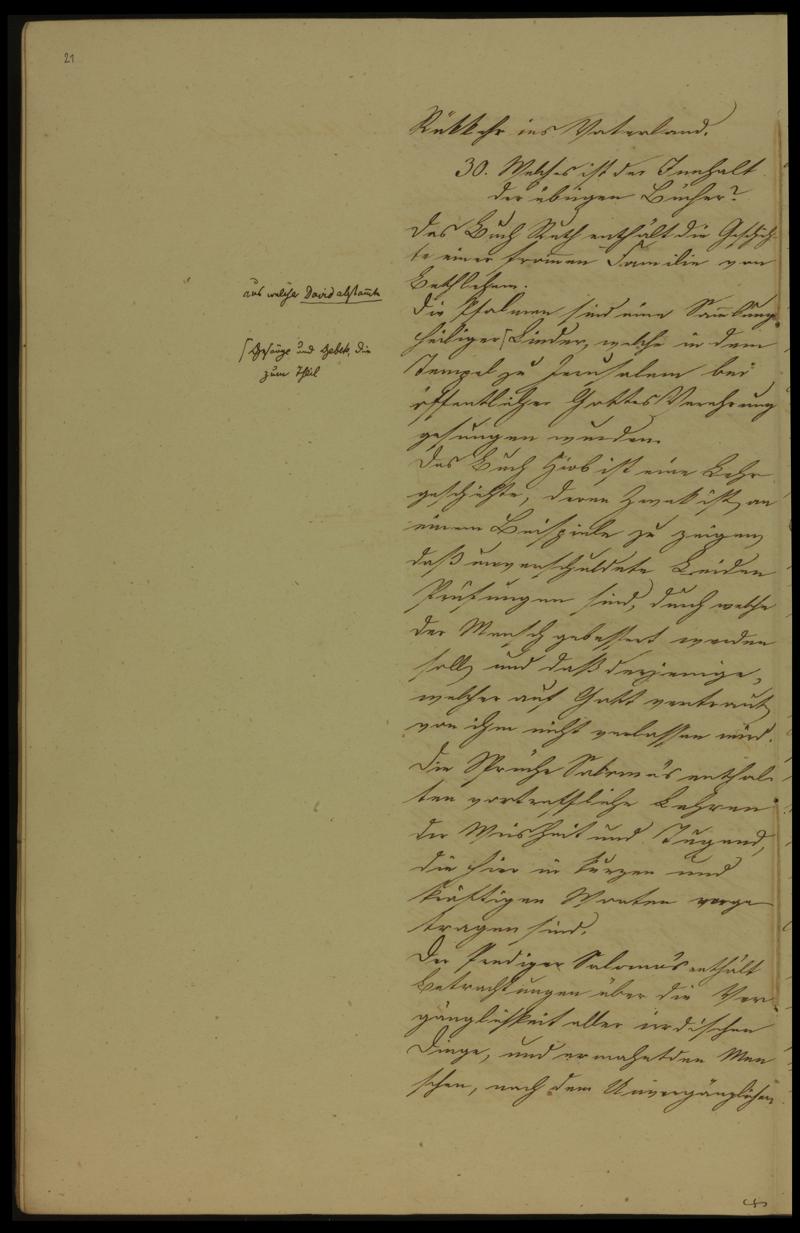 21
Rükkehr ins Vaterland.
30. Welches ist der Innhalt
der übrigen Bücher?
Das Buch Ruth enthält die Geschich-
te einer from̄en Familie von
Bethlehem.
aus welcher David abstam̄te
Die Psalmen sind eine Sam̄lung
heiliger ⌈ Lieder, welche in dem
⌈ Gesänge und Gebete, die
zum Theil
Tempel zu Jerusalem bei
öffentlicher Gottes Verehrung
gesungen wurden.
Das Buch Hiob ist eine Lehr
geschichte, deren Zwek ist, an
einem Beispiele zu zeigen,
daß unverschuldete Leiden
Prüfungen sind, durch welche
der Mensch gebessert werden
soll, und daß derjenige,
welcher auf Gott vertraut,
von ihm nicht verlassen wird.
Die Sprüche Salomo's enthal-
ten vortreffliche Lehren
der Weisheit und Tugend,
die hier in kurzen und
kräftigen Worten vorge
tragen sind.
Der Prediger Salomo's enthält
Betrachtungen über die Ver-
gänglichkeit aller irrdischen
Dinge, und ermahnt den Men
schen, nach dem Unvergänglichen